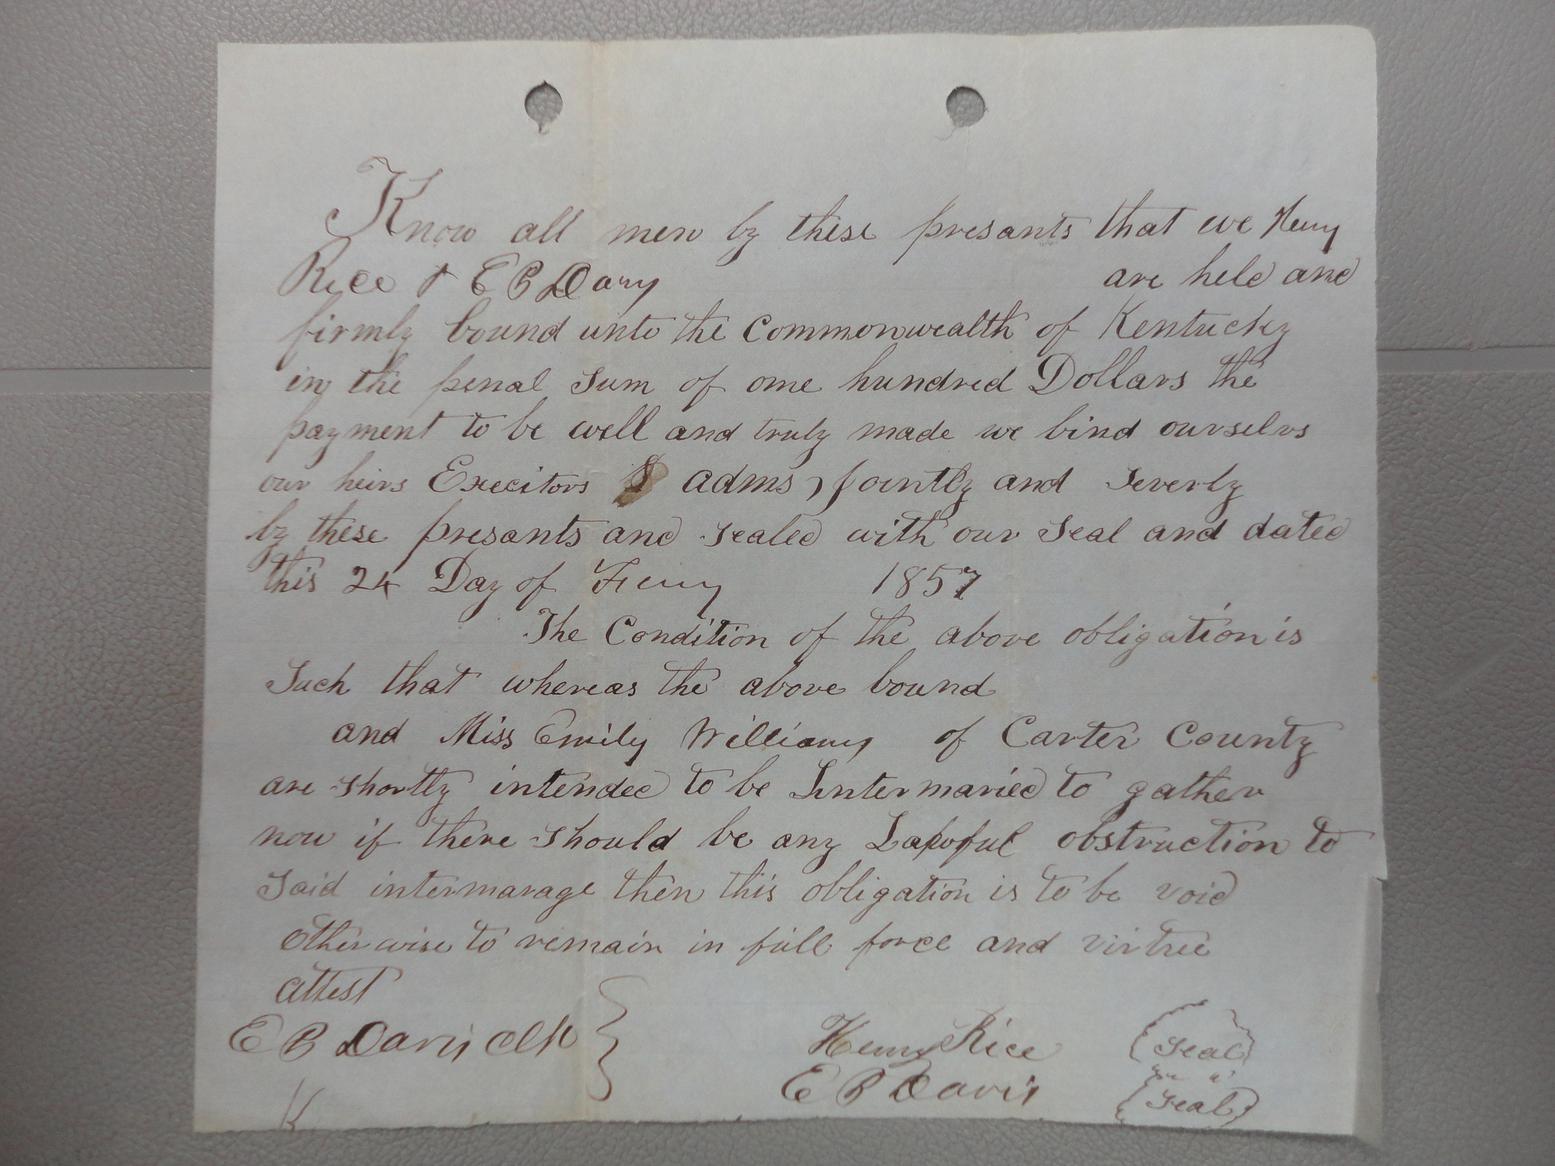 Know all men by these presants that we Henry
Rice & E B Davis are held and
firmly bound unto the Commonwealth of Kentucky
in the penal Sum of one hundred Dollars the
payment to be well and truly made we bind ourselvs
our heirs Execitors & adms, Jointly and Severly
by these presants and Sealed with our Seal and dated
this 24 Day of 1857
The Condition of the above obligation is
Such that whereas the above bound
and Miss Emily Williams of Carter County
are Shortly intended to be Intermaried to gather
now if there Should be any Lawful obstruction to
Said intermarage then this obligation is to be void
otherwise to remain in full force and virtue
attest
E B Davis Clk
Henry Rice (Seal)
E B Davis (Seal)